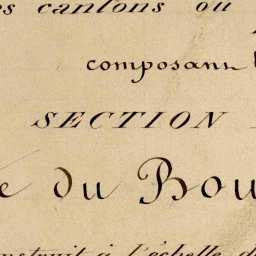 es cantons ou
composant
SECTION
é du Bou
nstruit à l'échelle d